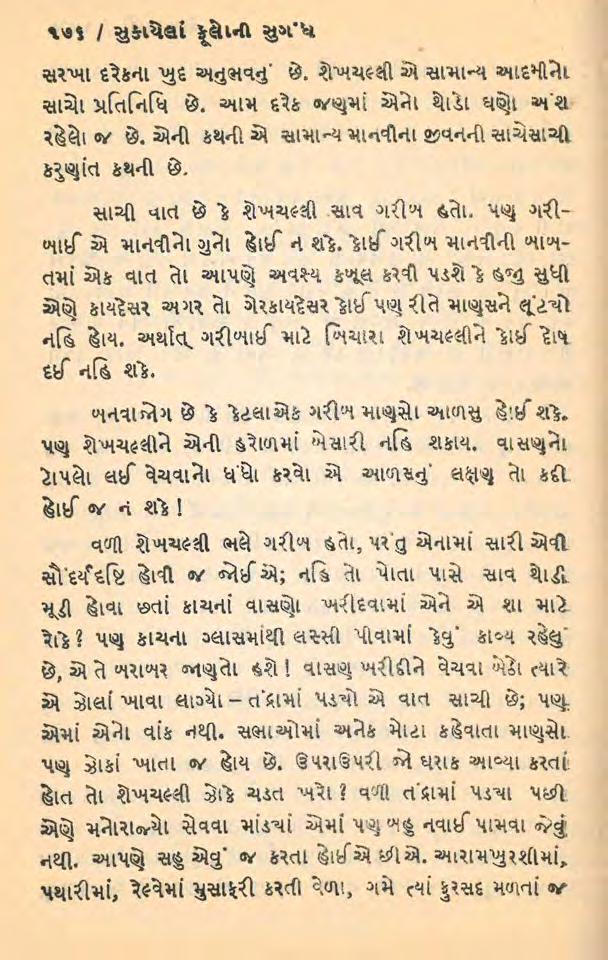 ૧૭૬ / સુકાયેલાં ફૂલોની સુગંધ
સરખા દરેકના ખુદ અનુભવનું છે. શેખચલ્લી એ સામાન્ય આદમીનો
સાચો પ્રતિનિધિ છે. આમ દરેક જણમાં એનો થોડો ઘણો અંશ
રહેલો જ છે. એની કથની એ સામાન્ય માનવીના જીવનની સાચેસાચી
કરુણાંત કથની છે.
સાચી વાત છે કે શેખચલ્લી સાવ ગરીબ હતો. પણ ગરી-
બાઈ એ માનવીનો ગુનો હોઈ ન શકે. કોઈ ગરીબ માનવીની બાબ-
તમાં એક વાત તો આપણે અવશ્ય કબૂલ કરવી પડશે કે હજુ સુધી
એણે કાયદેસર અગર તો ગેરકાયદેસર કોઈ પણ રીતે માણસને લૂંટ્યો
નહિ હોય. અર્થાત્ ગરીબાઈ માટે બિચારા શેખચલ્લીને કોઈ દોષ
દઈ નહિ શકે.
બનવાજોગ છે કે કેટલાએક ગરીબ માણસો આળસુ હોઈ શકે.
પણ શેખચલ્લીને એની હરોળમાં બેસારી નહિ શકાય. વાસણનો
ટોપલો લઈ વેચવાનો ધંધો કરવો એ આળસનું લક્ષણ તો કદી
હોઈ જ ન શકે !
વળી શેખચલ્લી ભલે ગરીબ હતો, પરંતુ એનામાં સારી એવી
સૌંદર્યદૃષ્ટિ હોવી જ જોઈએ; નહિ તો પોતા પાસે સાવ થોડી
મૂડી હોવા છતાં કાચનાં વાસણો ખરીદવામાં એને એ શા માટે
રોકે ? પણ કાચના ગ્લાસમાંથી લસ્સી પીવામાં કેવું કાવ્ય રહેલું
છે, એ તે બરાબર જાણતો હશે ! વાસણ ખરીદીને વેચવા બેઠો ત્યારે
એ ઝોલાં ખાવા લાગ્યો – તંદ્રામાં પડ્યો એ વાત સાચી છે; પણ
એમાં એનો વાંક નથી. સભાઓમાં અનેક મોટા કહેવાતા માણસો
પણ ઝોકાં ખાતા જ હોય છે. ઉપરાઉપરી જો ઘરાક આવ્યા કરતાં
હોત તો શેખચલ્લી ઝોકે ચડત ખરો ? વળી તંદ્રામાં પડ્યા પછી
એણે મનોરાજ્યો સેવવા માંડ્યાં એમાં પણ બહુ નવાઈ પામવા જેવું
નથી. આપણે સહુ એવું જ કરતા હોઈએ છીએ. આરામખુરશીમાં,
પથારીમાં, રેલ્વેમાં મુસાફરી કરતી વેળા, ગમે ત્યાં ફુરસદ મળતાં જ